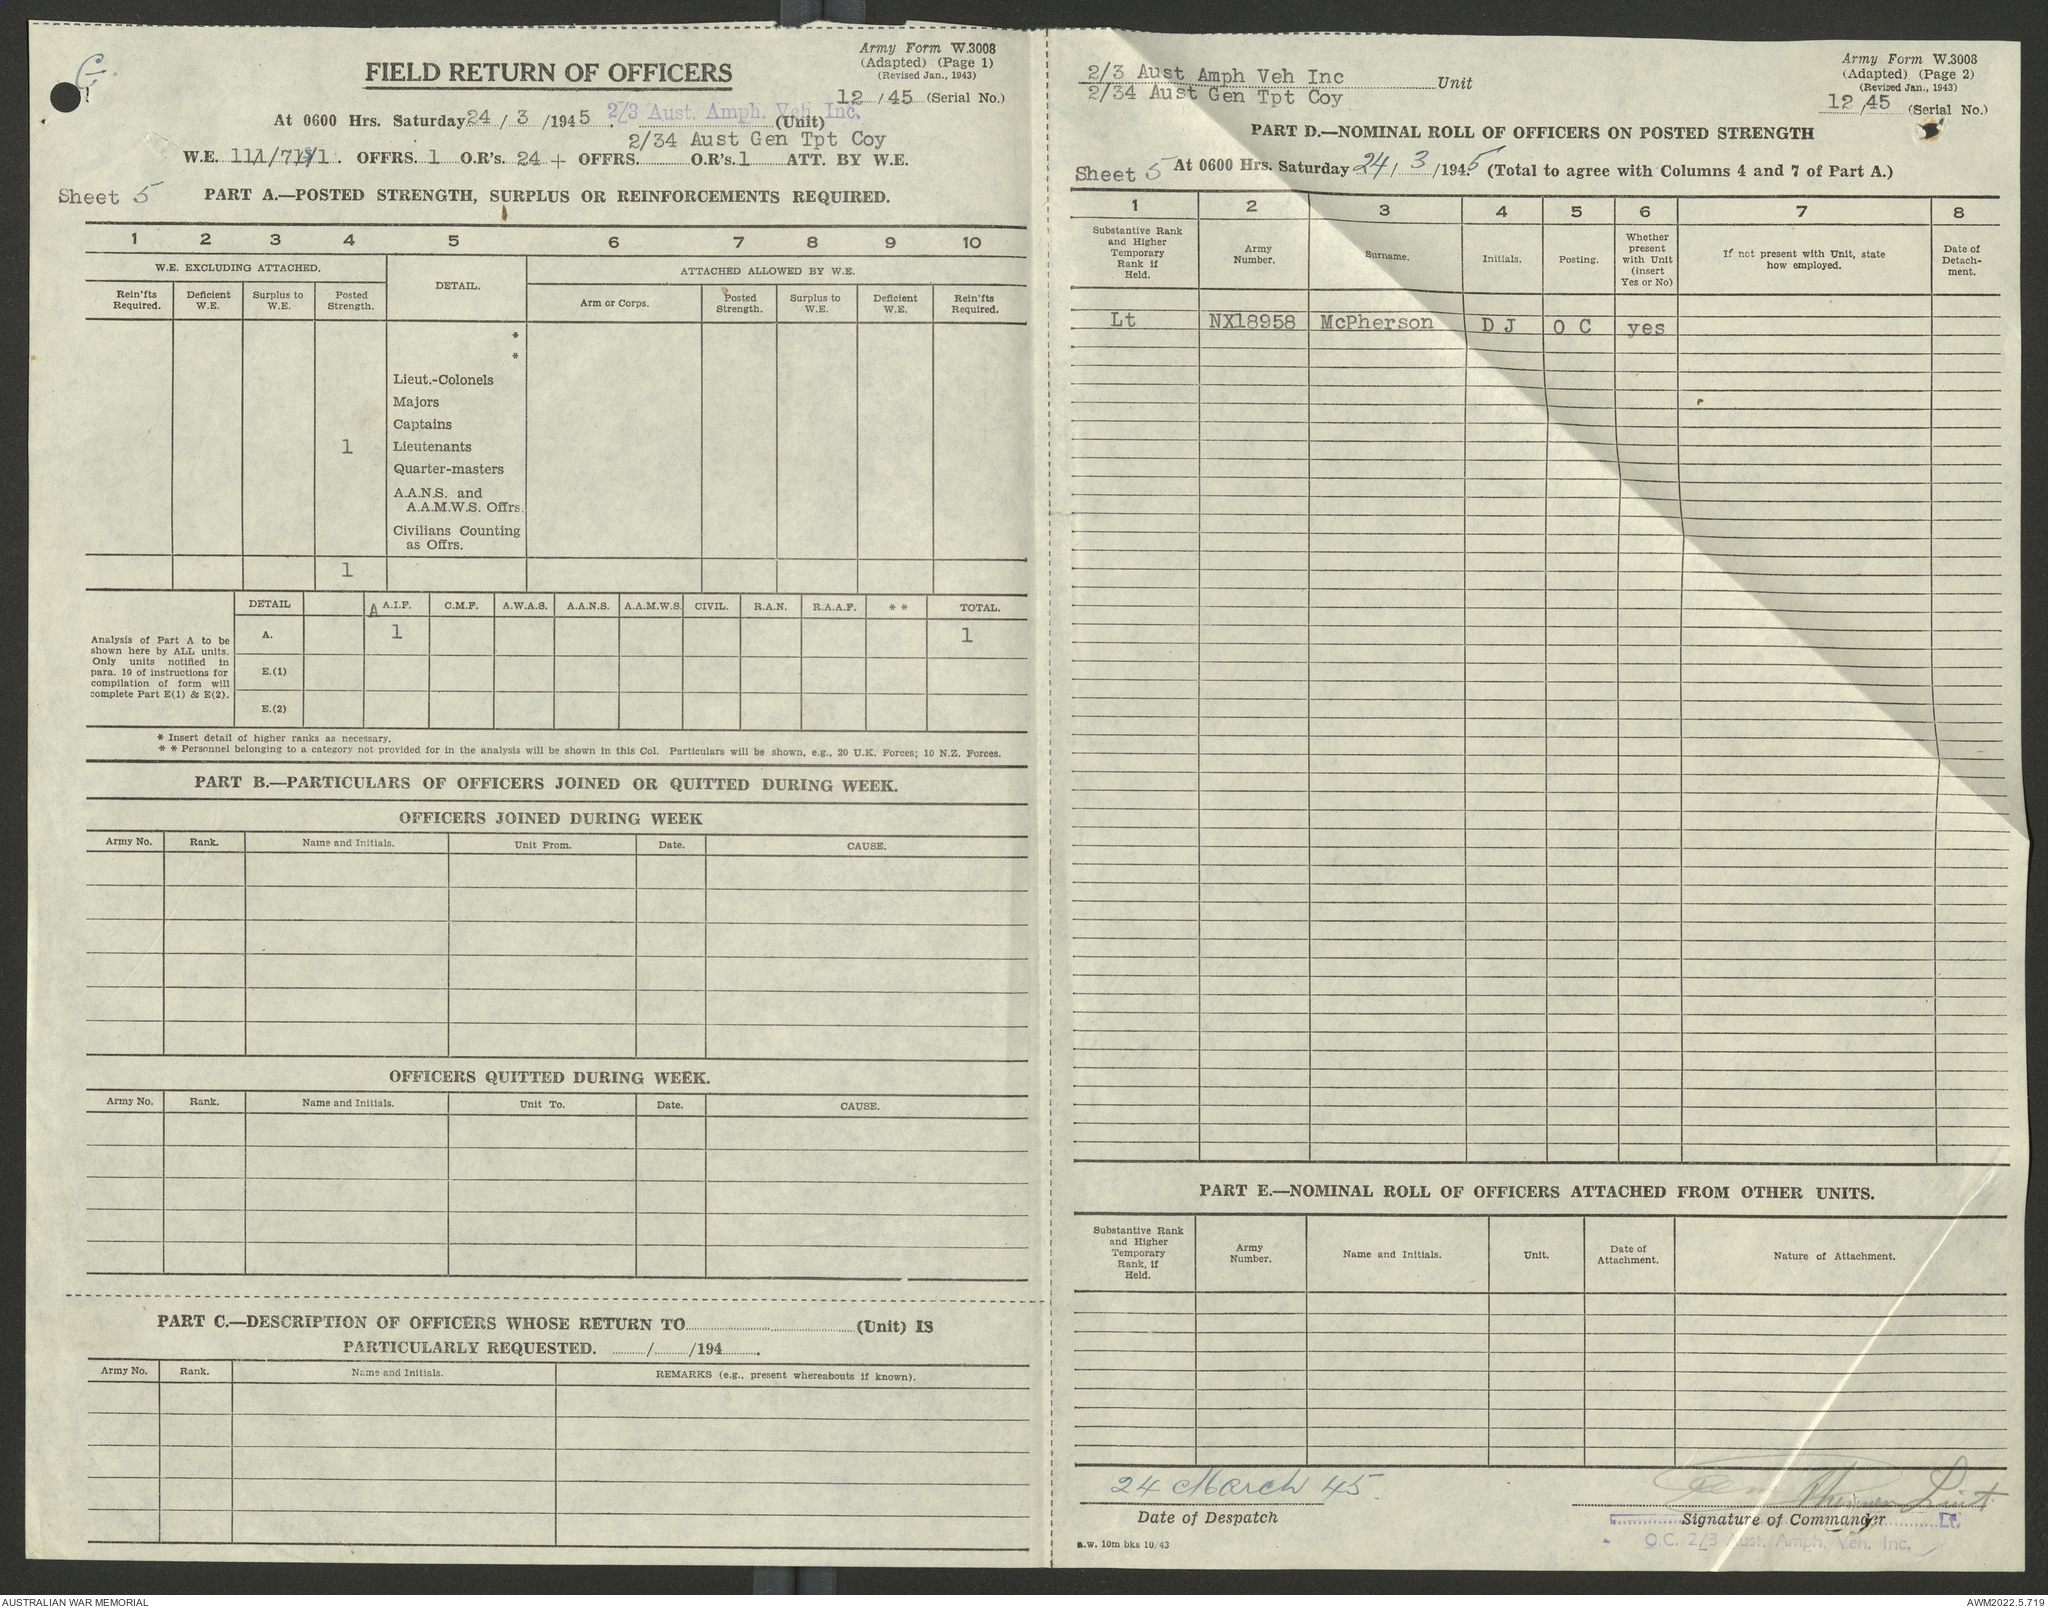 C
FIELD RETURN OF OFFICERS
Army Form W.3008
(Adapted) (Page 1)
(Revised Jan., 1943)
12 /45 (Serial No.)
At 0600 Hrs. Saturday 24 / 3 /1945. 2/3 Aust. Amph. Veh. Inc. (Unit)
2/34 Aust Gen Tpt Coy
OFFRS. 1 O.R's. 24 + OFFRS. O.R's. 1 ATT. BY W.E.
Sheet 5 PART A.—POSTED STRENGTH, SURPLUS OR REINFORCEMENTS REQUIRED.
1 2 3 4 5 6 7 8 9 10
W.E. EXCLUDING ATTACHED. DETAIL. ATTACHED ALLOWED BY W.E.
Rein'fts Required. Deficient W.E. Surplus to W.E. Posted Strength. Arm or Corps. Posted Strength. Surplus to W.E. Deficient W.E. Rein'fts Required.
*
*
Lieut.-Colonels
Majors
Captains
1 Lieutenants
Quarter-masters
A.A.N.S. and
A.A.M.W.S. Offrs.
Civilians Counting
as Offrs.
1
DETAIL A A.I.F. C.M.F. A.W.A.S. A.A.N.S. A.A.M.W.S. CIVIL. R.A.N. R.A.A.F. * * TOTAL.
A. 1 1
E.(1)
E.(2)
Analysis of Part A to be
shown here by ALL units.
Only units notified in
para. 10 of instructions for
compilation of form will
complete Part E(1) & E(2).
* Insert detail of higher ranks as necessary.
* * Personnel belonging to a category not provided for in the analysis will be shown in this Col. Particulars will be shown, e.g., 20 U.K. Forces; 10 N.Z. Forces.
PART B.—PARTICULARS OF OFFICERS JOINED OR QUITTED DURING WEEK.
OFFICERS JOINED DURING WEEK
Army No. Rank. Name and Initials. Unit From. Date. CAUSE.
OFFICERS QUITTED DURING WEEK.
Army No. Rank. Name and Initials. Unit To. Date. CAUSE.
PART C.—DESCRIPTION OF OFFICERS WHOSE RETURN TO (Unit) IS
PARTICULARLY REQUESTED. / /194 .
Army No. Rank. Name and Initials. REMARKS (e.g., present whereabouts if known).
2/3 Aust Amph Veh Inc
2/34 Aust Gen Tpt Coy
Unit
Army Form W.3008
(Adapted) (Page 2)
(Revised Jan., 1943)
12 /45 (Serial No.)
PART D.—NOMINAL ROLL OF OFFICERS ON POSTED STRENGTH
Sheet 5 At 0600 Hrs. Saturday 24 / 3 /1945 (Total to agree with Columns 4 and 7 of Part A.)
1 2 3 4 5 6 7 8
Substantive Rank and Higher Temporary Rank if Held. Army Number. Surname. Initials. Posting. Whether present with Unit (insert Yes or No) If not present with Unit, state how employed. Date of Detach-ment.
Lt NX18958 McPherson D J O C yes
PART E.—NOMINAL ROLL OF OFFICERS ATTACHED FROM OTHER UNITS.
Substantive Rank and Higher Temporary Rank, if Held. Army Number. Name and Initials. Unit. Date of Attachment. Nature of Attachment.
24 March 45.
Date of Despatch
Lieut
Signature of Commander Lt.
O.C. 2/3 Aust. Amph. Veh. Inc.
a.w. 10m bks 10/43
AUSTRALIAN WAR MEMORIAL
AWM2022.5.719